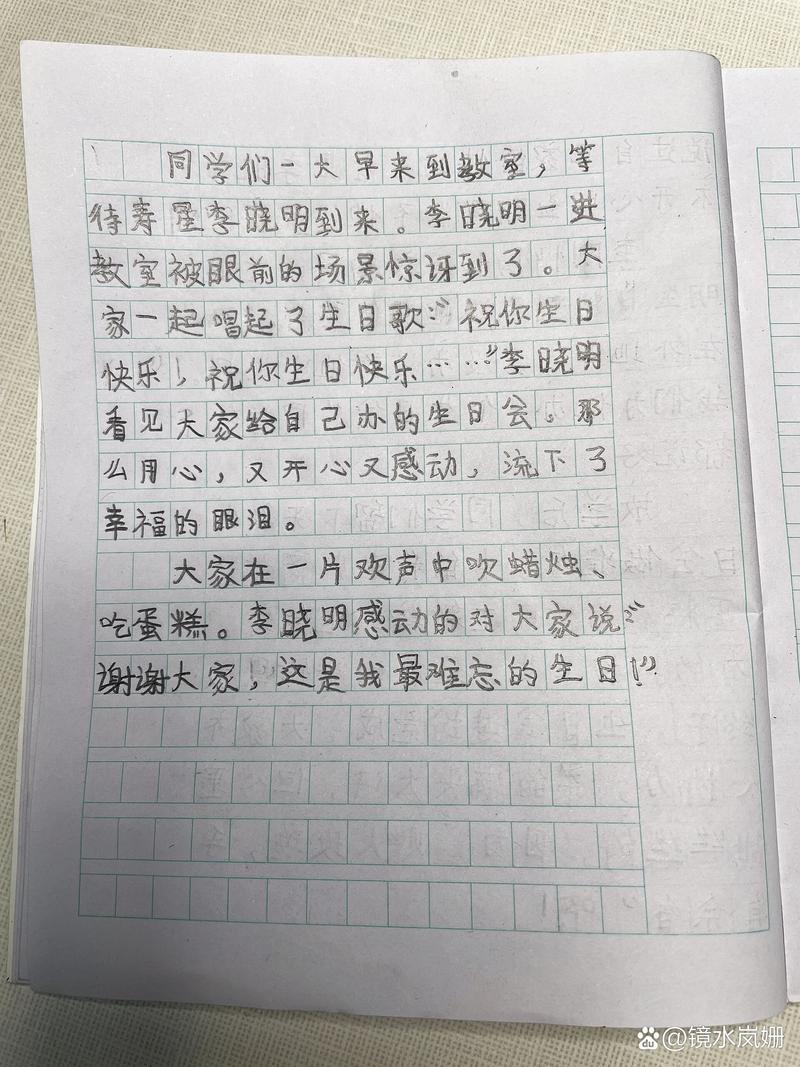 同学们一大早来到教室，等
待寿星李晓明到来。李晓明一进
教室被眼前的场景惊讶到了。大
家一起唱起了生日歌：“祝你生日
快乐！祝你生日快乐……”李晓明
看见大家给自己办的生日会。那
么用心，又开心又感动，流下了
幸福的眼泪。
大家在一片欢声中吹蜡烛、
吃蛋糕。李晓明感动的对大家说：“
谢谢大家！这是我最难忘的生日！”
@镜水岚姗